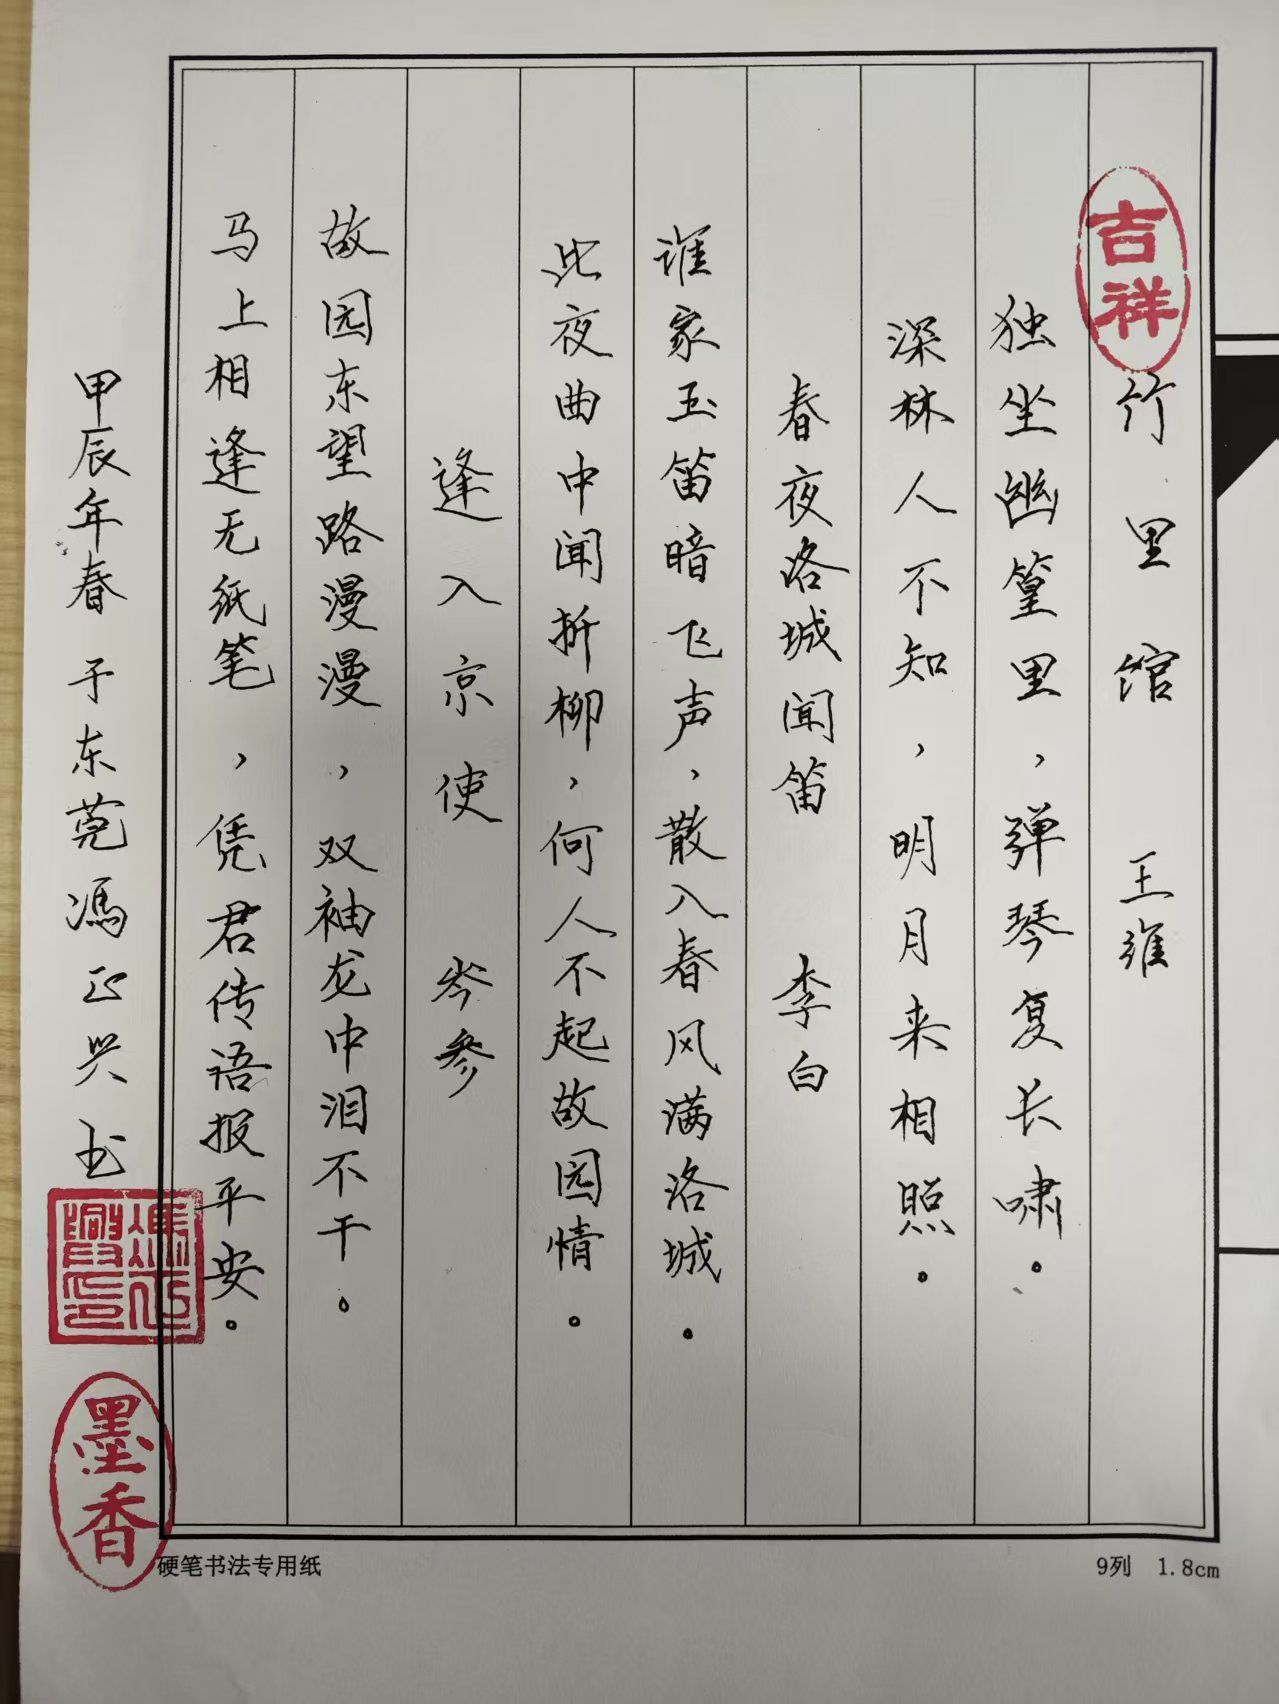 吉祥
竹里馆 王维
独坐幽篁里，弹琴复长啸。
深林人不知，明月来相照。
春夜洛城闻笛 李白
谁家玉笛暗飞声，散入春风满洛城。
此夜曲中闻折柳，何人不起故园情。
逢入京使 岑参
故园东望路漫漫，双袖龙中泪不干。
马上相逢无纸笔，凭君传语报平安。
甲辰年春 于东莞冯正兴书
墨香
硬笔书法专用纸
9列 1.8cm